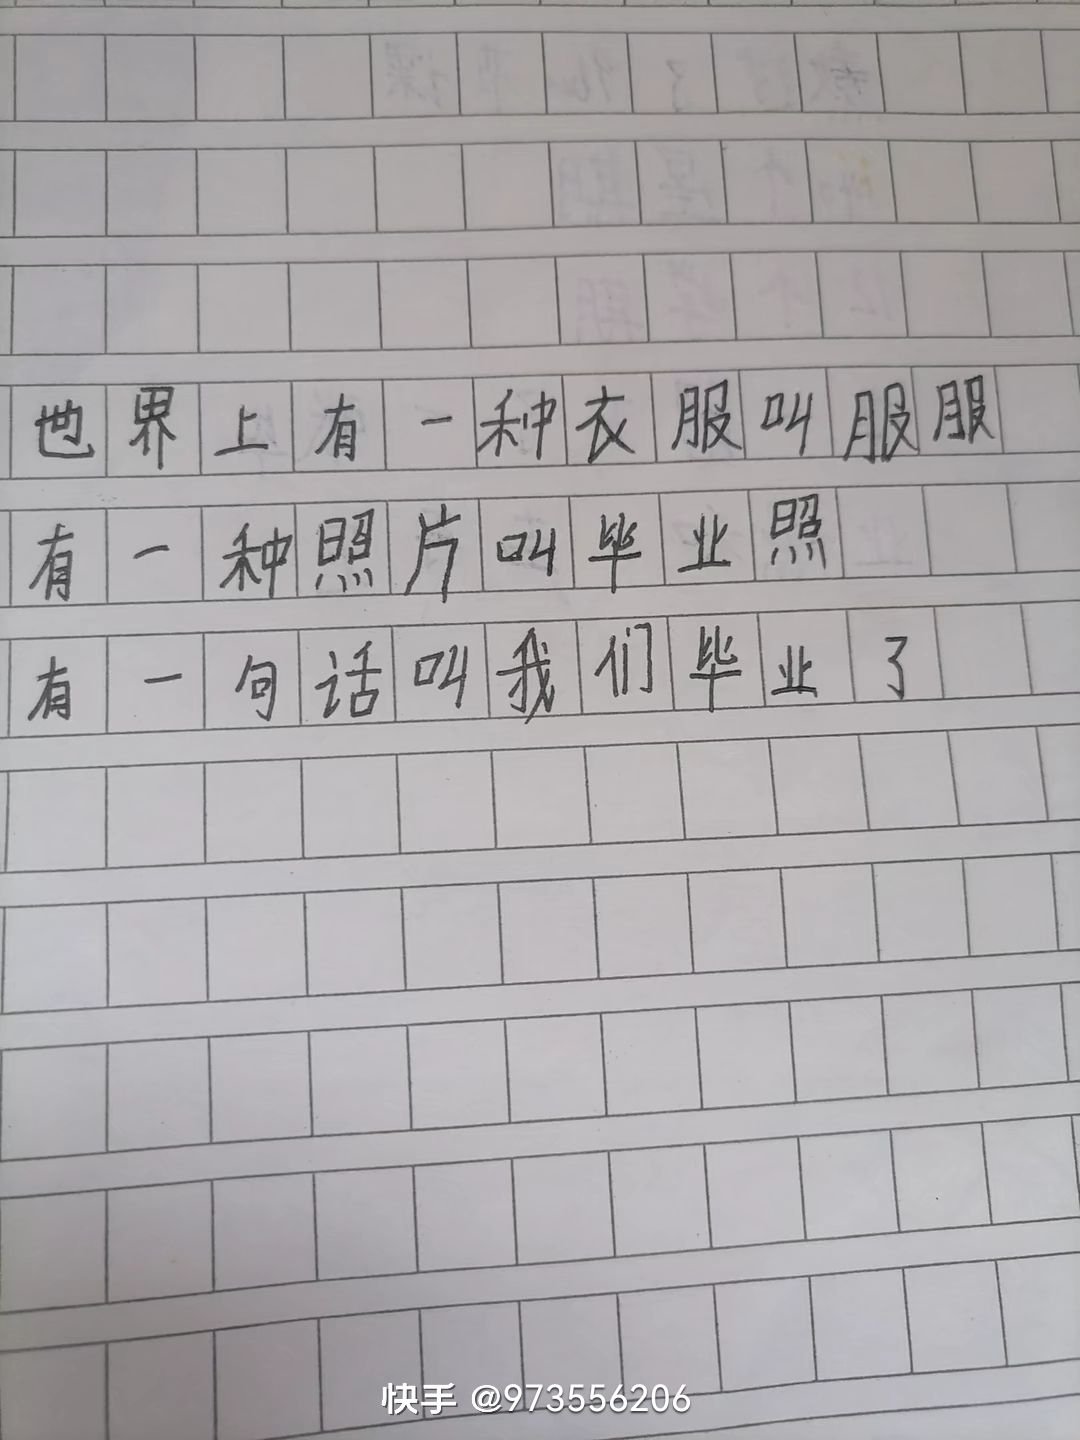 世界上有一种衣服叫服服
有一种照片叫毕业照
有一句话叫我们毕业了
快手 @973556206